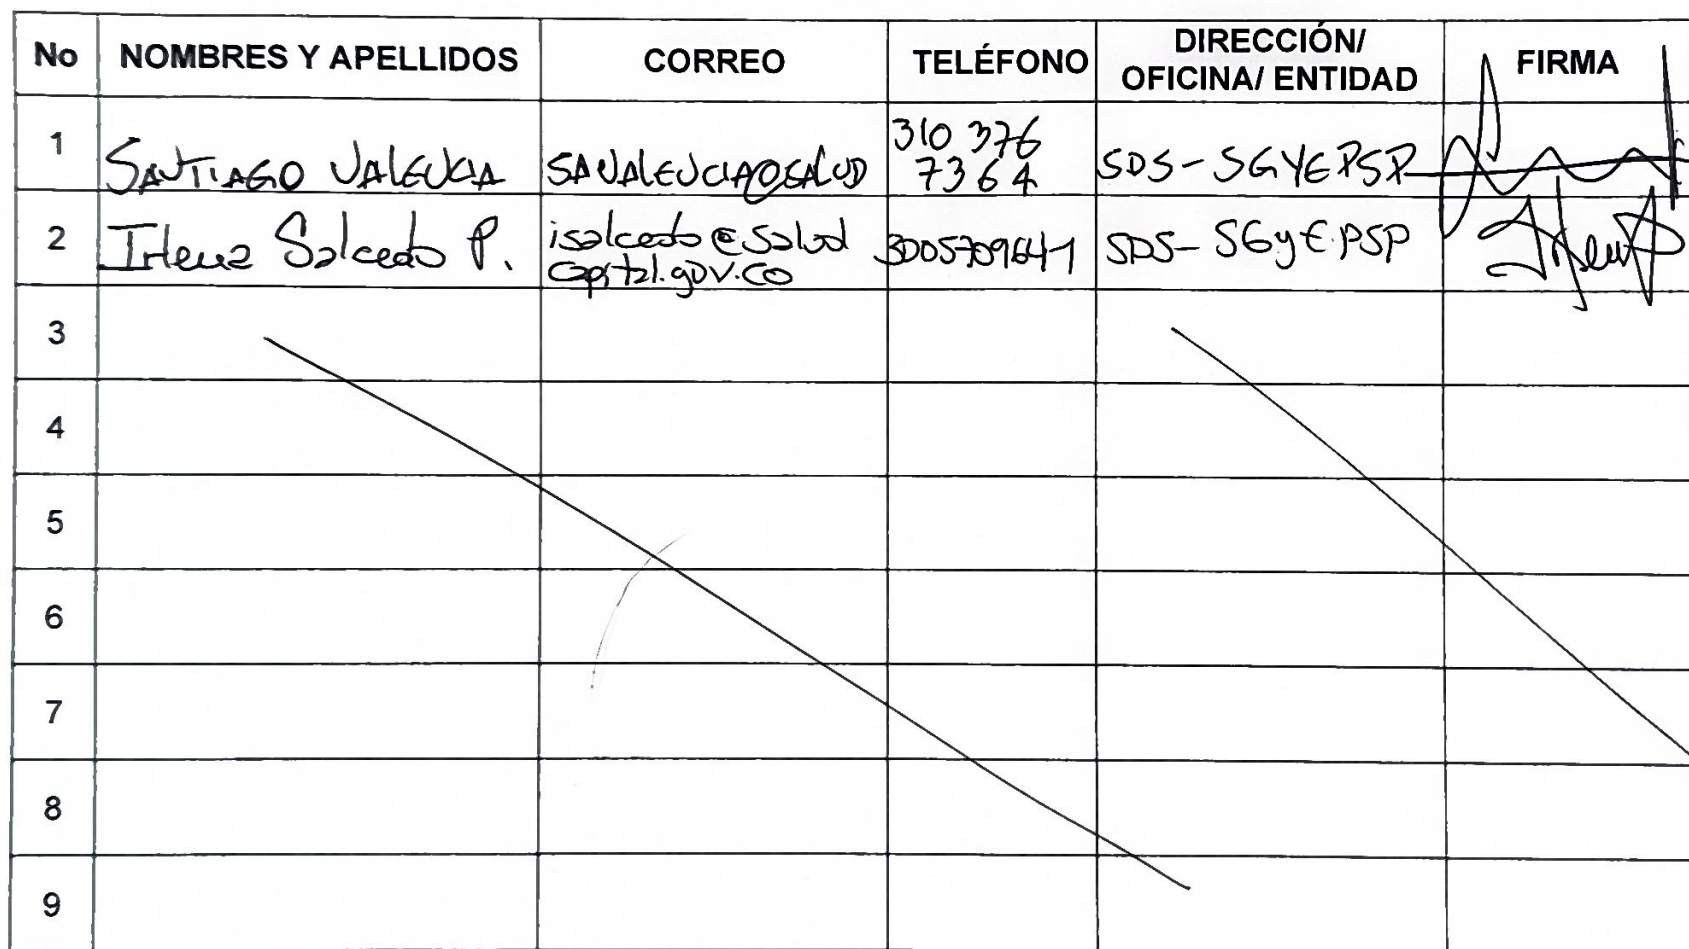 No NOMBRES Y APELLIDOS CORREO TELÉFONO DIRECCIÓN/ OFICINA/ ENTIDAD FIRMA
1 SANTIAGO VALENCIA SAVALENCIA@SALUD 310 376 7364 SDS-SGYEPSP
2 Salcedo P. isalcedo@salud SDS-SGyEPSP
capital.gov.co
3
4
5
6
7
8
9